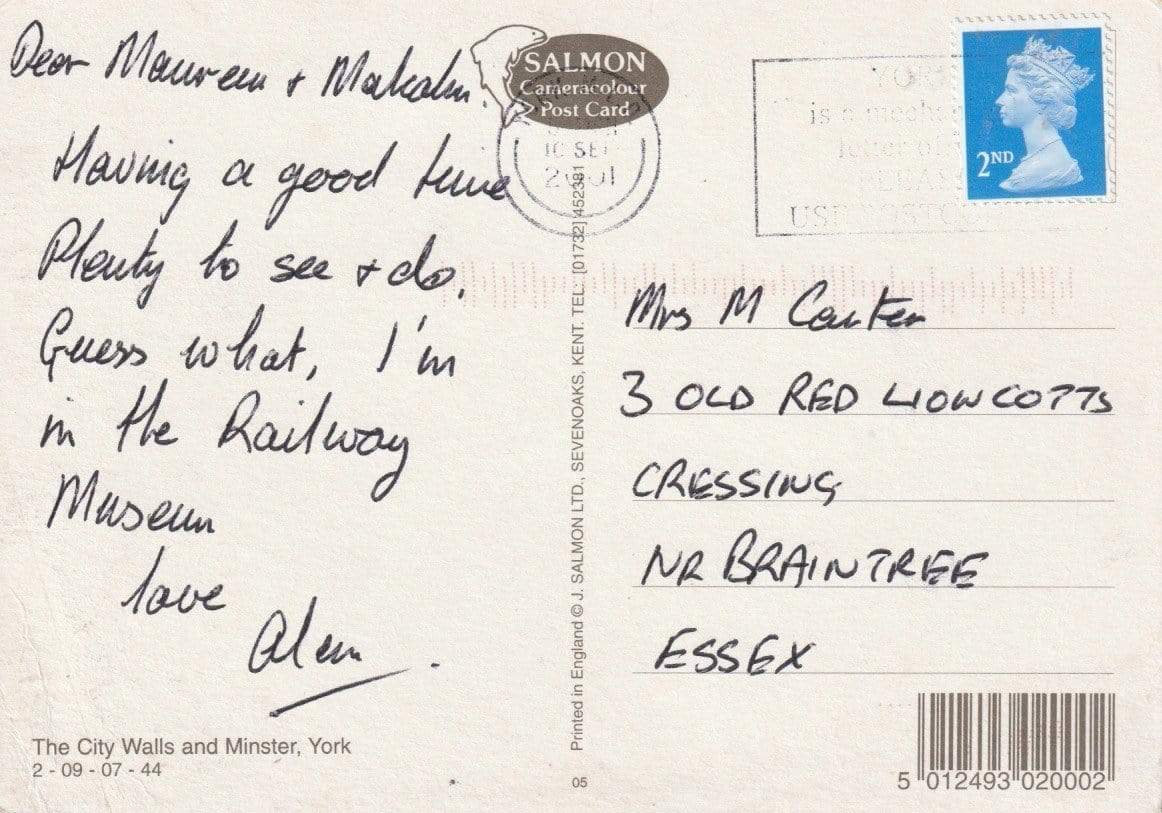 Dear Maureen + Malcolm.
Having a good time
Plenty to see + do.
Guess what, I'm
in the Railway
Museum
love
Alan.
The City Walls and Minster, York
2 - 09 - 07 - 44
SALMON
Cameracolour
Post Card
10 SEP
2001
Printed in England © J. SALMON LTD., SEVENOAKS, KENT. TEL: [01732] 452381
05
is a
letter of
USE POSTCO
2ND
Mrs M Carter
3 OLD RED LION COTTS
CRESSING
NR BRAINTREE
ESSEX
5 012493 020002